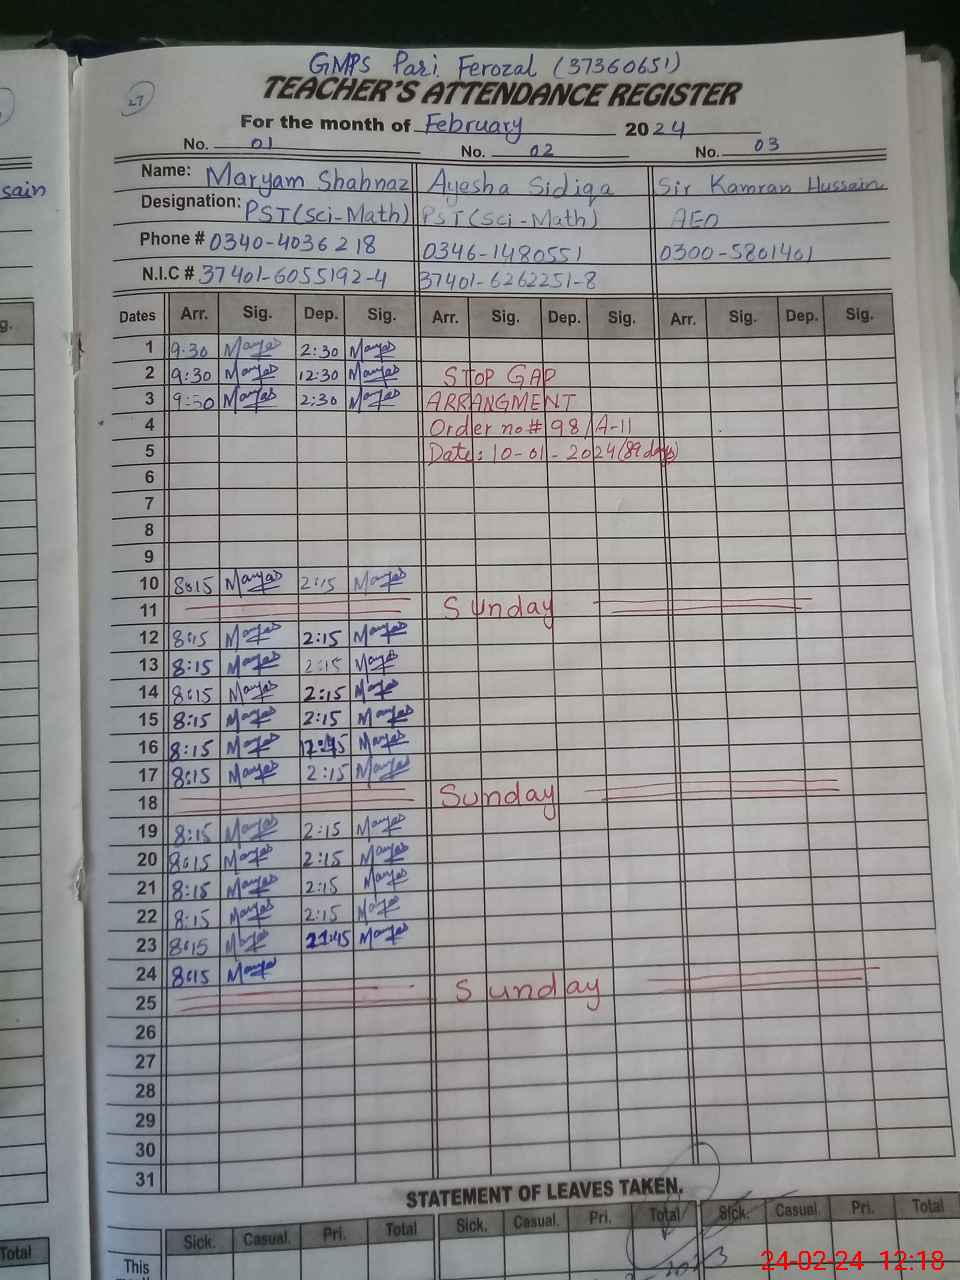 GMPS Pari Ferozal (37360651)
27
TEACHER'S ATTENDANCE REGISTER
For the month of February 2024
No. 01 No. 02 No. 03
Name: Maryam Shahnaz Ayesha Sidiqa Sir Kamran Hussain
Designation: PST(Sci-Math) PST(Sci-Math) AEO
Phone # 0340-4036218 0346-1480551 0300-5801401
N.I.C # 37401-6055192-4 37401-6262251-8
Dates Arr. Sig. Dep. Sig. Arr. Sig. Dep. Sig. Arr. Sig. Dep. Sig.
1 9:30 2:30
2 9:30 12:30 STOP GAP
3 9:30 2:30 ARRANGMENT
4 Order no # 98/A-11
5 Date: 10-01-2024 (89 days)
6
7
8
9
10 8:15 2:15
11 Sunday
12 8:15 2:15
13 8:15 2:15
14 8:15 2:15
15 8:15 2:15
16 8:15 12:45
17 8:15 2:15
18 Sunday
19 8:15 2:15
20 8:15 2:15
21 8:15 2:15
22 8:15 2:15
23 8:15
24 8:15
25 Sunday
26
27
28
29
30
31
STATEMENT OF LEAVES TAKEN.
Sick. Casual. Pri. Total Sick. Casual. Pri. Total Sick. Casual. Pri. Total
This
sain
g.
Total
24-02-24 12:18